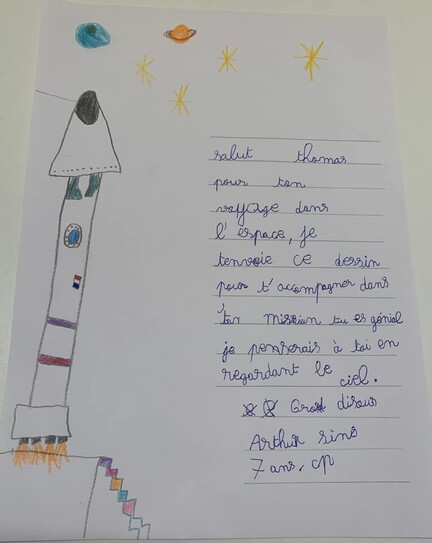 salut thomas
pour ton
voyage dans
l'espace, je
tenvoie ce dessin
pour t'accompagner dans
ta mission tu es génial
je penserais à toi en
regardant le ciel.
Gros disous
Arthur sins
7 ans. CP